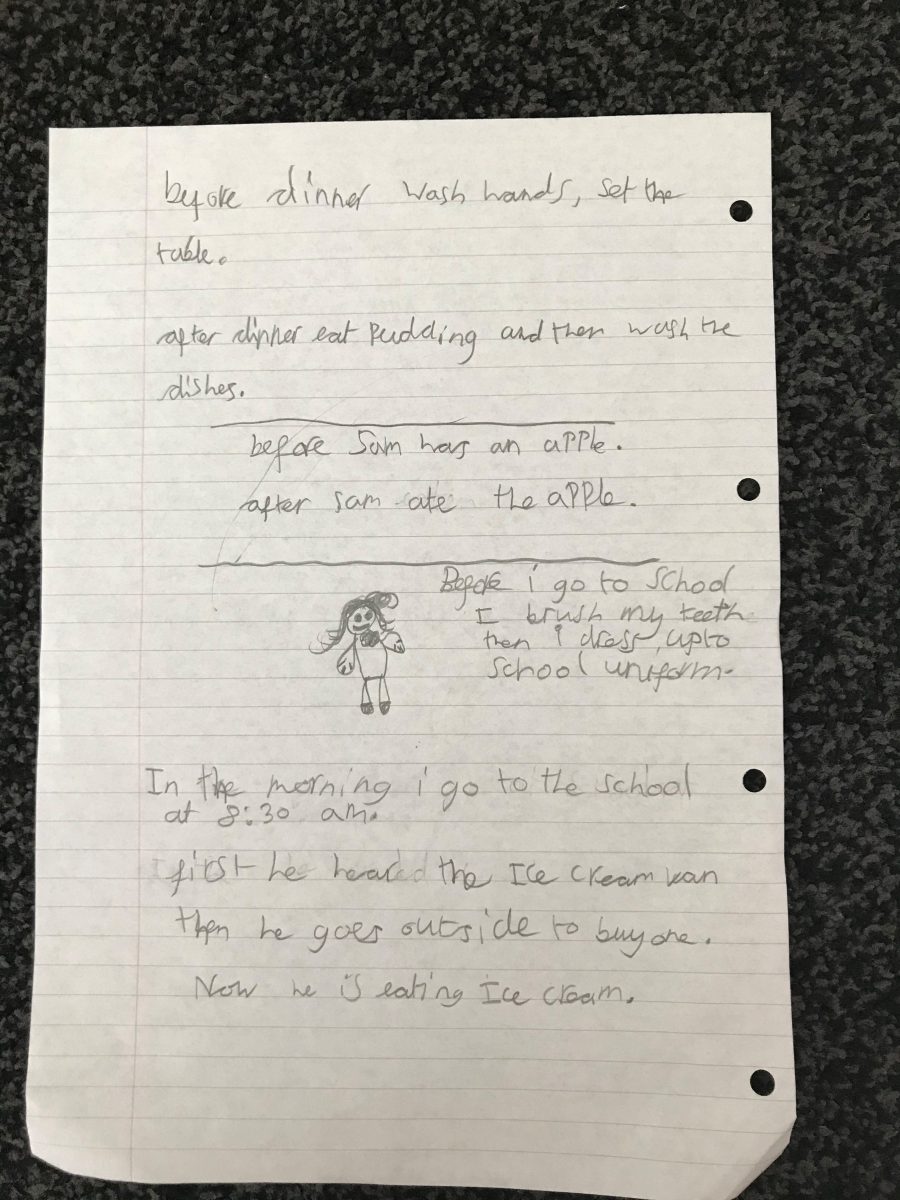 before dinner wash hands, set the
table.
after dinner eat Pudding and then wash the
dishes.
before Sam has an apple.
after sam ate the apple.
Before i go to school
I brush my teeth
then i dress up to
school uniform.
In the morning i go to the school
at 8:30 am.
first he heared the Ice cream van
then he goes outside to buy one.
Now he is eating Ice cream.